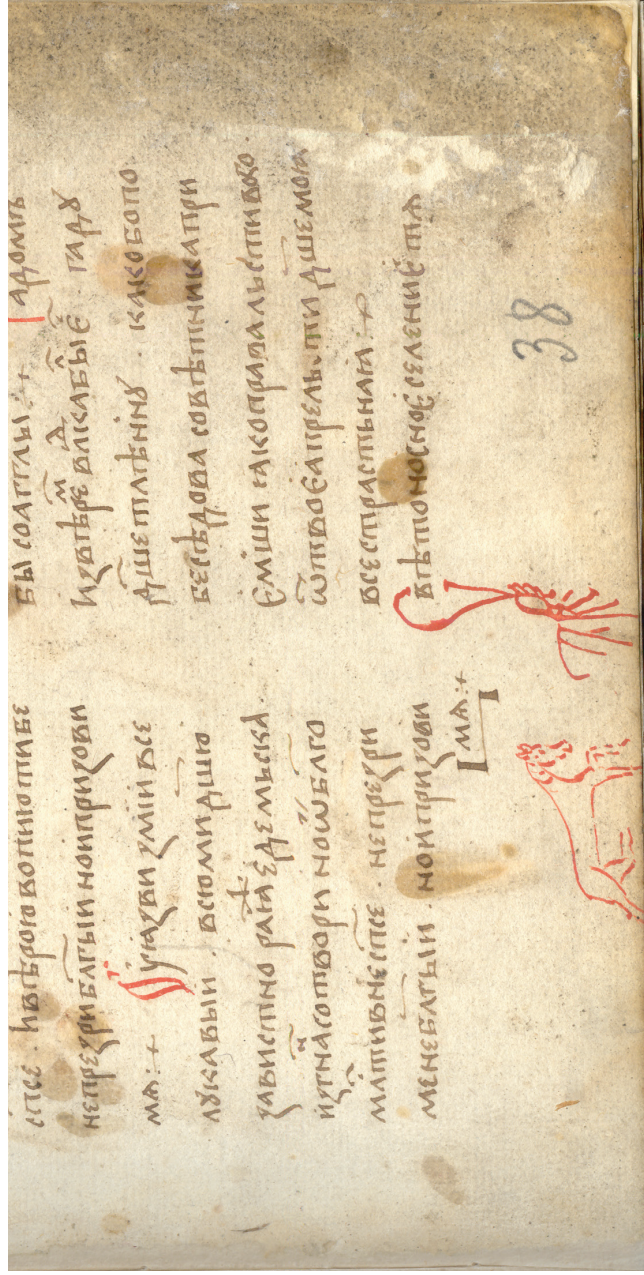 спсе · ивѣроювопиютибе
непрезрибл҃гыи ноипризови
мѧ :+ Ꙋꙗзвизмииⷡсе
лꙋкавыи · всюмидш҃ю
завистно раꙗ едемьска ·
изгнасотвори ноѿбл҃го
мл҃тивнеспсе · непрезри
менебл҃гыи · ноипризови
мѧ :+
бы соагг҃лы :+ адомъ
извѣре влⷣкабые · гадꙋ
дш҃етлѣннꙋ · какобопо
бесѣдова совѣтникапри
емши ꙗкоправальстиваго ·
ѿтвоеапрельсти дш҃емоꙗ
всестрастьнаꙗ :+
вѣтоносноеселениетѧ
38